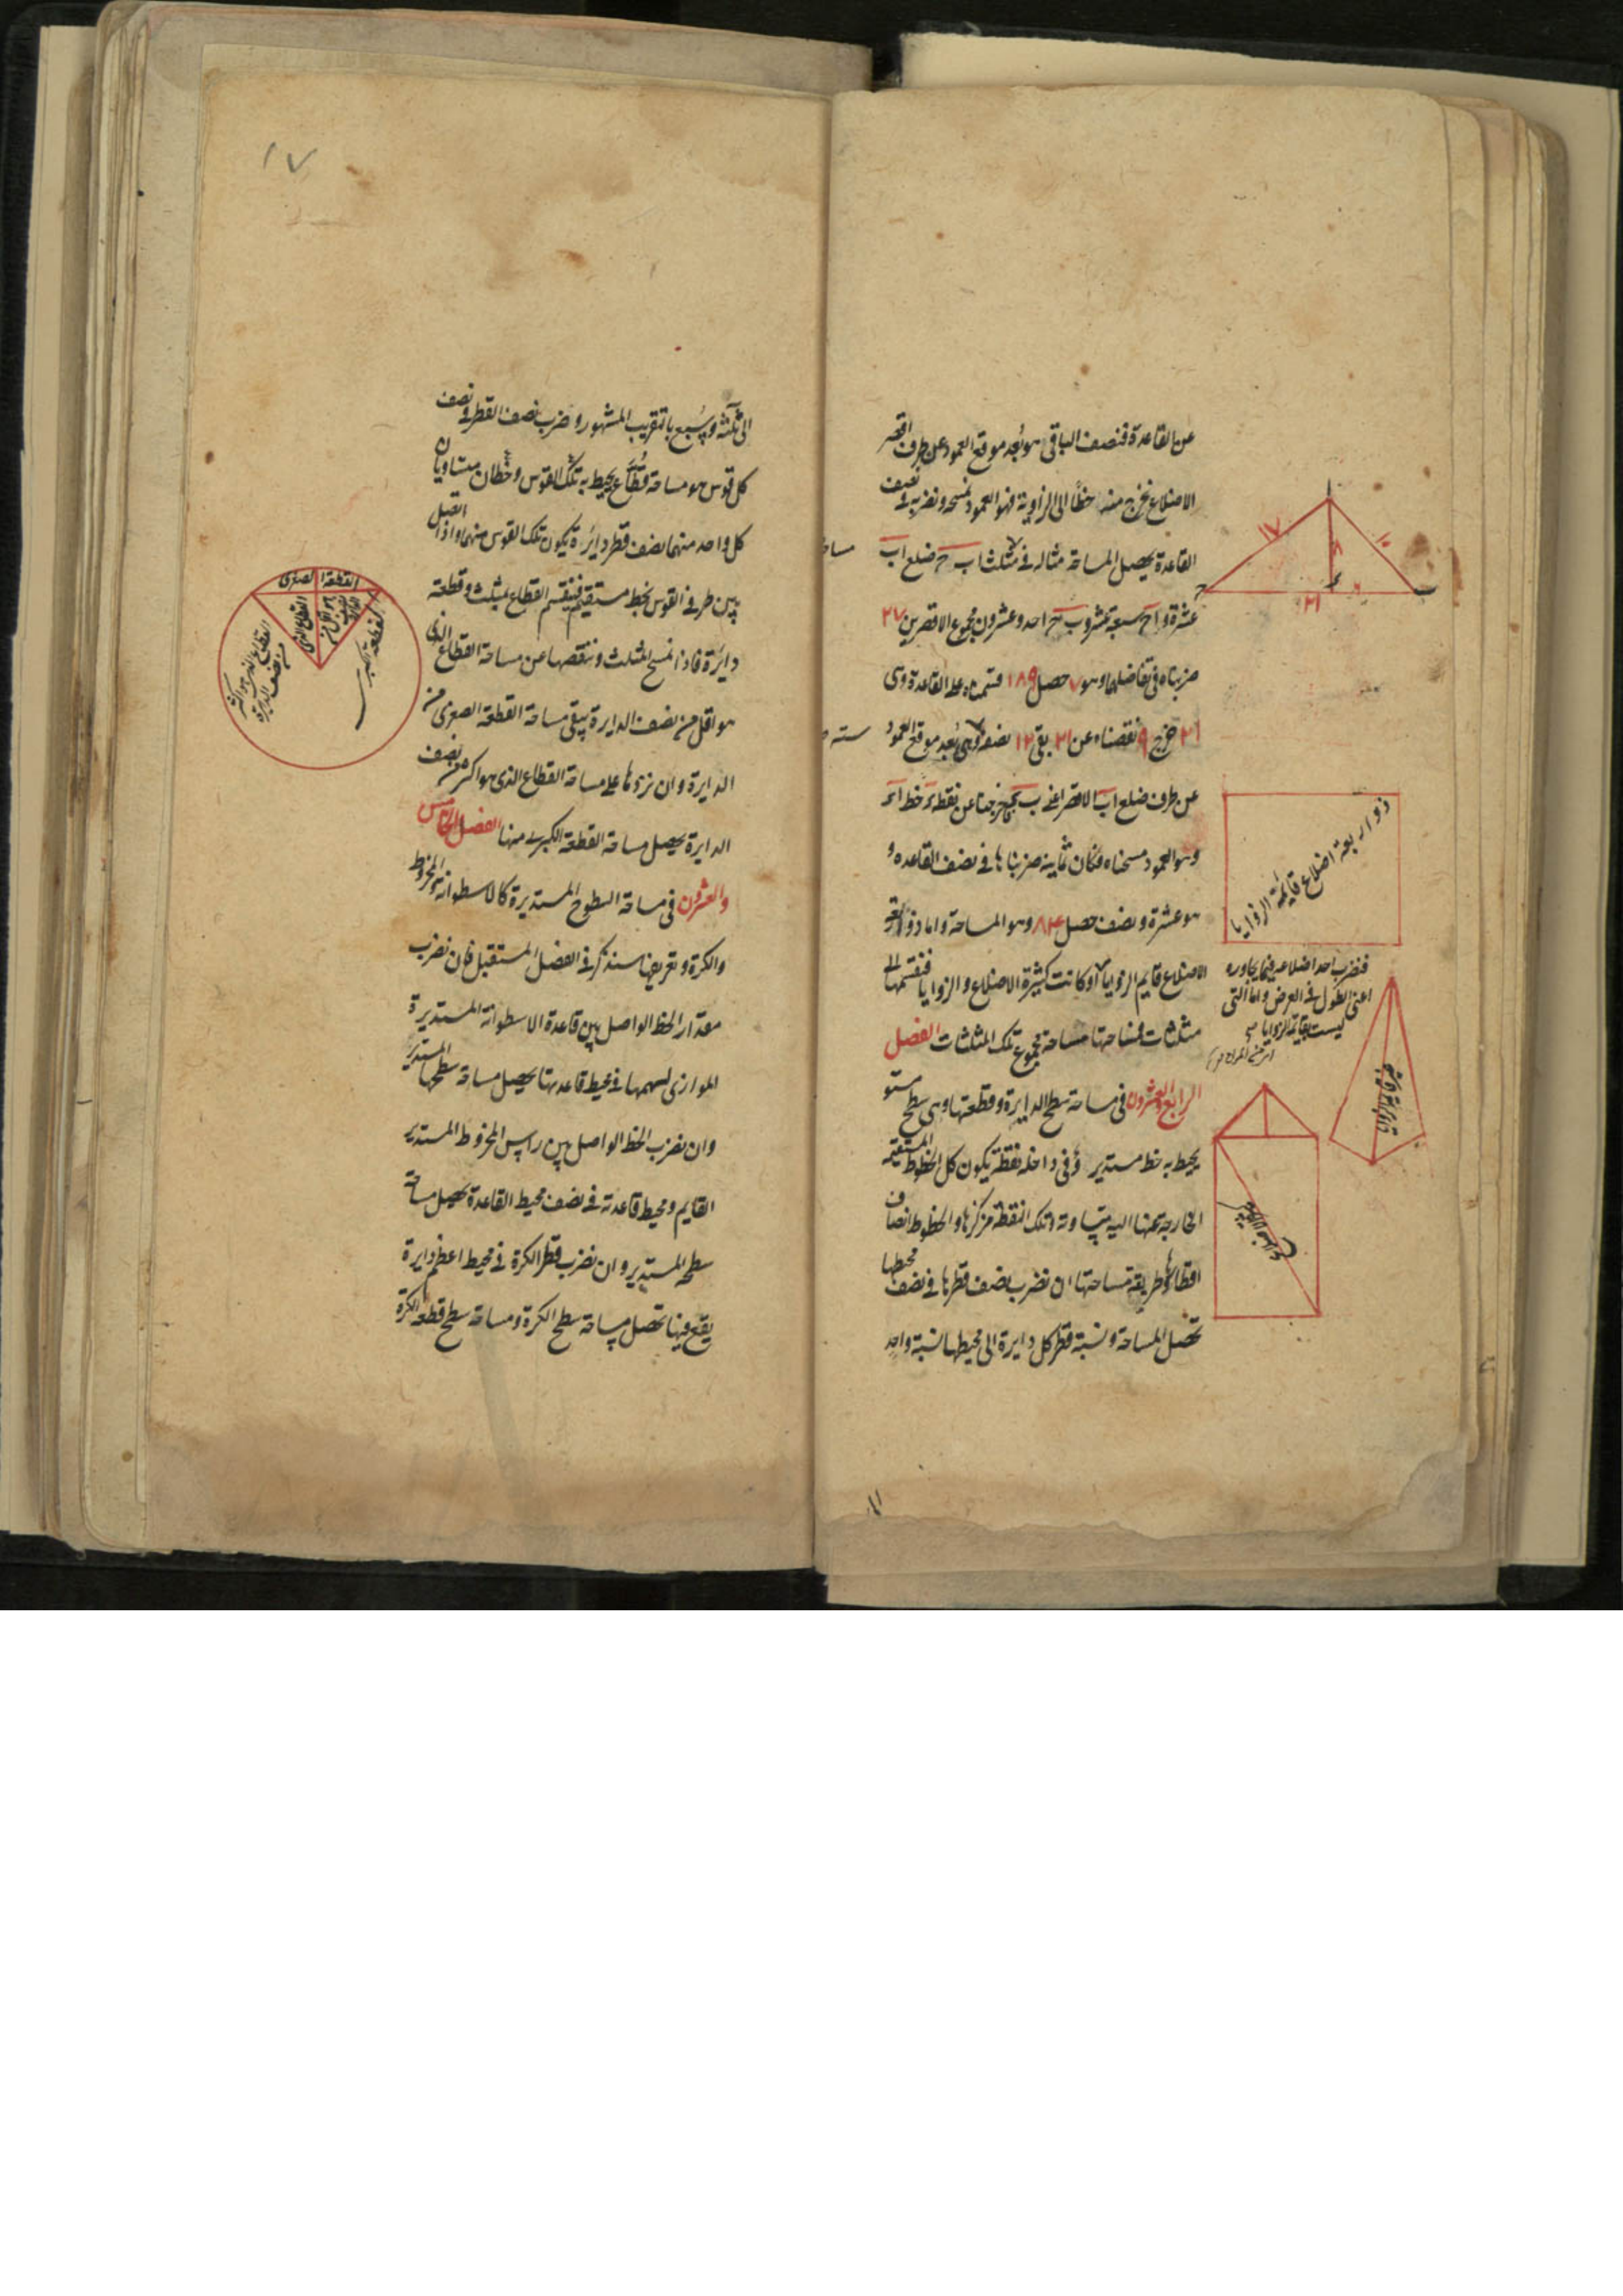 عن القاعدة فنصف الباقى هو بُعد موقع العمود عن طرف اقصر
الاضلاع نخرج منه خطًّا الى الزاوية فهو العمود نمسحه ونضربه فى نصف
القاعدة يحصل المساحة مثاله فى مثلث اب ج ضلع اب
عشرة و اج سبعة عشر و ب ج احد وعشرون مجموع الاقصرين ٢٧
ضربناه فى تفاضلهما وهو ٧ حصل ١٨٩ قسمناه على القاعدة وهى
٢١ خرج ٩ نقصناه عن ٢١ بقى ١٢ نصفه ٦ وهى بُعد موقع العمود
عن طرف ضلع اب الاقصر اعنى ب ء فخرجنا عن نقطة ء خط اء
وهو العمود مسحناه فكان ثمانية ضربناها فى نصف القاعدة و
هو عشرة ونصف حصل ٨٤ وهو المساحة واما ذو اربعة
الاضلاع قايم الزوايا او كانت كثيرة الاضلاع والزوايا فنقسمها الى
مثلثات فمساحتها مساحة مجموع تلك المثلثات الفصل
الرابع والعشرون فى مساحة سطح الدايرة وقطعتها وهى سطح مستو
يحيط به خط مستدير وفى داخله نقطة يكون كل الخطوط المستقيمة
الخارجة عنها اليه متساوية وتلك النقطة مركزها والخطوط انصاف
اقطارها وطريقة مساحتها ان نضرب نصف قطرها فى نصف محيطها
تحصل المساحة ونسبة قطر كل دايرة الى محيطها نسبة واحد
١٧
١٠
٨
٦
٢١
ذو اربعة اضلاع قايمة الزوايا
فنضرب احد اضلاعه فيما يجاوره
اعنى الطول فى العرض واما التى
ليست بقايمة الزوايا
١٧
الى ثلثة وسُبع بالتقريب المشهور وضرب نصف القطر فى نصف
كل قوس هو مساحة قطاع يحيط به تلك القوس وخطان متساويان
كل واحد منهما نصف قطر دايرة يكون تلك القوس منها واذا اتصل
بين طرفى القوس بخط مستقيم فينقسم القطاع بمثلث وقطعة
دايرة فاذا نمسح المثلث وننقصها عن مساحة القطاع الذى
هو اقل من نصف الدايرة يبقى مساحة القطعة الصغرى من
الدايرة وان نزدها على مساحة القطاع الذى هو اكثر من نصف
الدايرة يحصل مساحة القطعة الكبرى منها الفصل الخامس
والعشرون فى مساحة السطوح المستديرة كالاسطوانة والمخروط
والكرة وتعريفها سنذكر فى الفصل المستقبل فان نضرب
مقدار الخط الواصل بين قاعدة الاسطوانة المستديرة
الموازى لسهمها فى محيط قاعدتها يحصل مساحة سطحها المستدير
وان نضرب الخط الواصل بين راس المخروط المستدير
القايم ومحيط قاعدته فى نصف محيط القاعدة يحصل مساحة
سطحه المستدير وان نضرب قطر الكرة فى محيط اعظم دايرة
يقع فيها تحصل مساحة سطح الكرة ومساحة سطح قطعة الكرة
القطعة الصغرى
القطاع الذى
هو اقل من
القطعة الكبرى
القطاع الذى هو اكثر
من نصف الدايرة